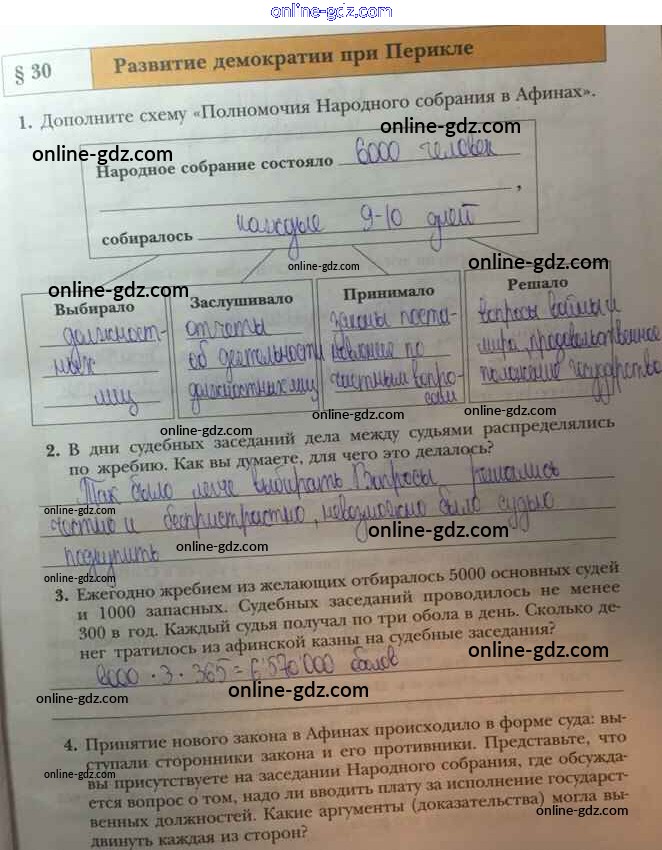 online-gdz.com
§ 30
Развитие демократии при Перикле
1. Дополните схему «Полномочия Народного собрания в Афинах».
online-gdz.com
online-gdz.com
Народное собрание состояло 6000 человек
,
собиралось каждые 9-10 дней
online-gdz.com
online-gdz.com
online-gdz.com
Выбирало
должност-
ных
лиц
Заслушивало
отчёты
об деятельности
должностных лиц
Принимало
законы поста-
новление по
частным вопро-
сам
Решало
вопросы войны и
мира, продовольственное
положение государства
online-gdz.com
online-gdz.com
online-gdz.com
2. В дни судебных заседаний дела между судьями распределялись
по жребию. Как вы думаете, для чего это делалось?
Так было легче выбирать Вопросы решались
честно и беспристрастно, невозможно было судью
подкупить
online-gdz.com
online-gdz.com
online-gdz.com
online-gdz.com
3. Ежегодно жребием из желающих отбиралось 5000 основных судей
и 1000 запасных. Судебных заседаний проводилось не менее
300 в год. Каждый судья получал по три обола в день. Сколько де-
нег тратилось из афинской казны на судебные заседания?
6000 · 3 · 365 = 6'570'000
online-gdz.com
online-gdz.com
online-gdz.com
4. Принятие нового закона в Афинах происходило в форме суда: вы-
ступали сторонники закона и его противники. Представьте, что
вы присутствуете на заседании Народного собрания, где обсужда-
ется вопрос о том, надо ли вводить плату за исполнение государст-
венных должностей. Какие аргументы (доказательства) могла вы-
двинуть каждая из сторон?
online-gdz.com
online-gdz.com